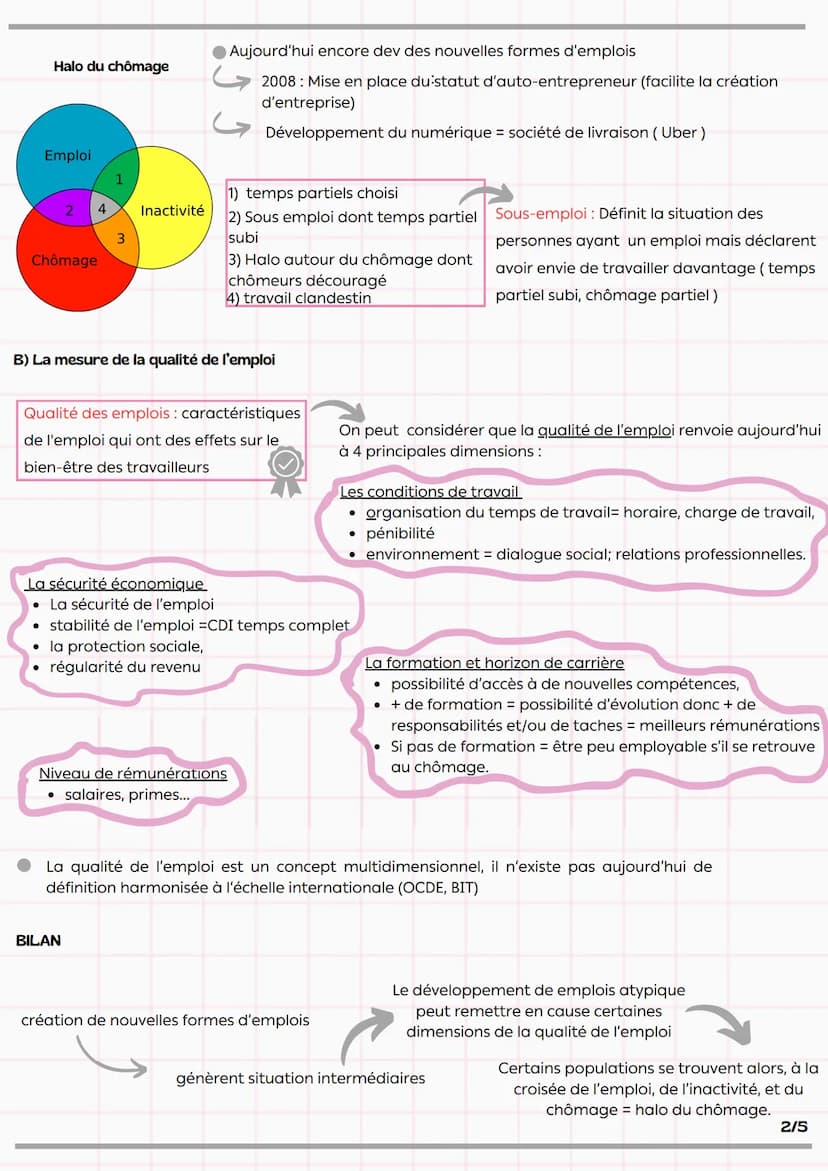 Halo du chômage
Aujourd'hui encore dev des nouvelles formes d'emplois
2008 : Mise en place du statut d'auto-entrepreneur (facilite la création
d'entreprise)
Développement du numérique = société de livraison ( Uber )
Emploi
1
2
4
Inactivité
3
Chômage
1) temps partiels choisi
2) Sous emploi dont temps partiel
subi
3) Halo autour du chômage dont
chômeurs découragé
4) travail clandestin
Sous-emploi : Définit la situation des
personnes ayant un emploi mais déclarent
avoir envie de travailler davantage ( temps
partiel subi, chômage partiel )
B) La mesure de la qualité de l'emploi
Qualité des emplois : caractéristiques
de l'emploi qui ont des effets sur le
bien-être des travailleurs
On peut considérer que la qualité de l'emploi renvoie aujourd'hui
à 4 principales dimensions :
Les conditions de travail
• organisation du temps de travail= horaire, charge de travail,
• pénibilité
• environnement = dialogue social; relations professionnelles.
La sécurité économique
• La sécurité de l'emploi
• stabilité de l'emploi =CDI temps complet
• la protection sociale,
• régularité du revenu
La formation et horizon de carrière
• possibilité d'accès à de nouvelles compétences,
• + de formation = possibilité d'évolution donc + de
responsabilités et/ou de taches = meilleurs rémunérations
• Si pas de formation = être peu employable s'il se retrouve
au chômage.
Niveau de rémunérations
• salaires, primes...
La qualité de l'emploi est un concept multidimensionnel, il n'existe pas aujourd'hui de
définition harmonisée à l'échelle internationale (OCDE, BIT)
BILAN
création de nouvelles formes d'emplois
génèrent situation intermédiaires
Le développement de emplois atypique
peut remettre en cause certaines
dimensions de la qualité de l'emploi
Certains populations se trouvent alors, à la
croisée de l'emploi, de l'inactivité, et du
chômage = halo du chômage.
2/5